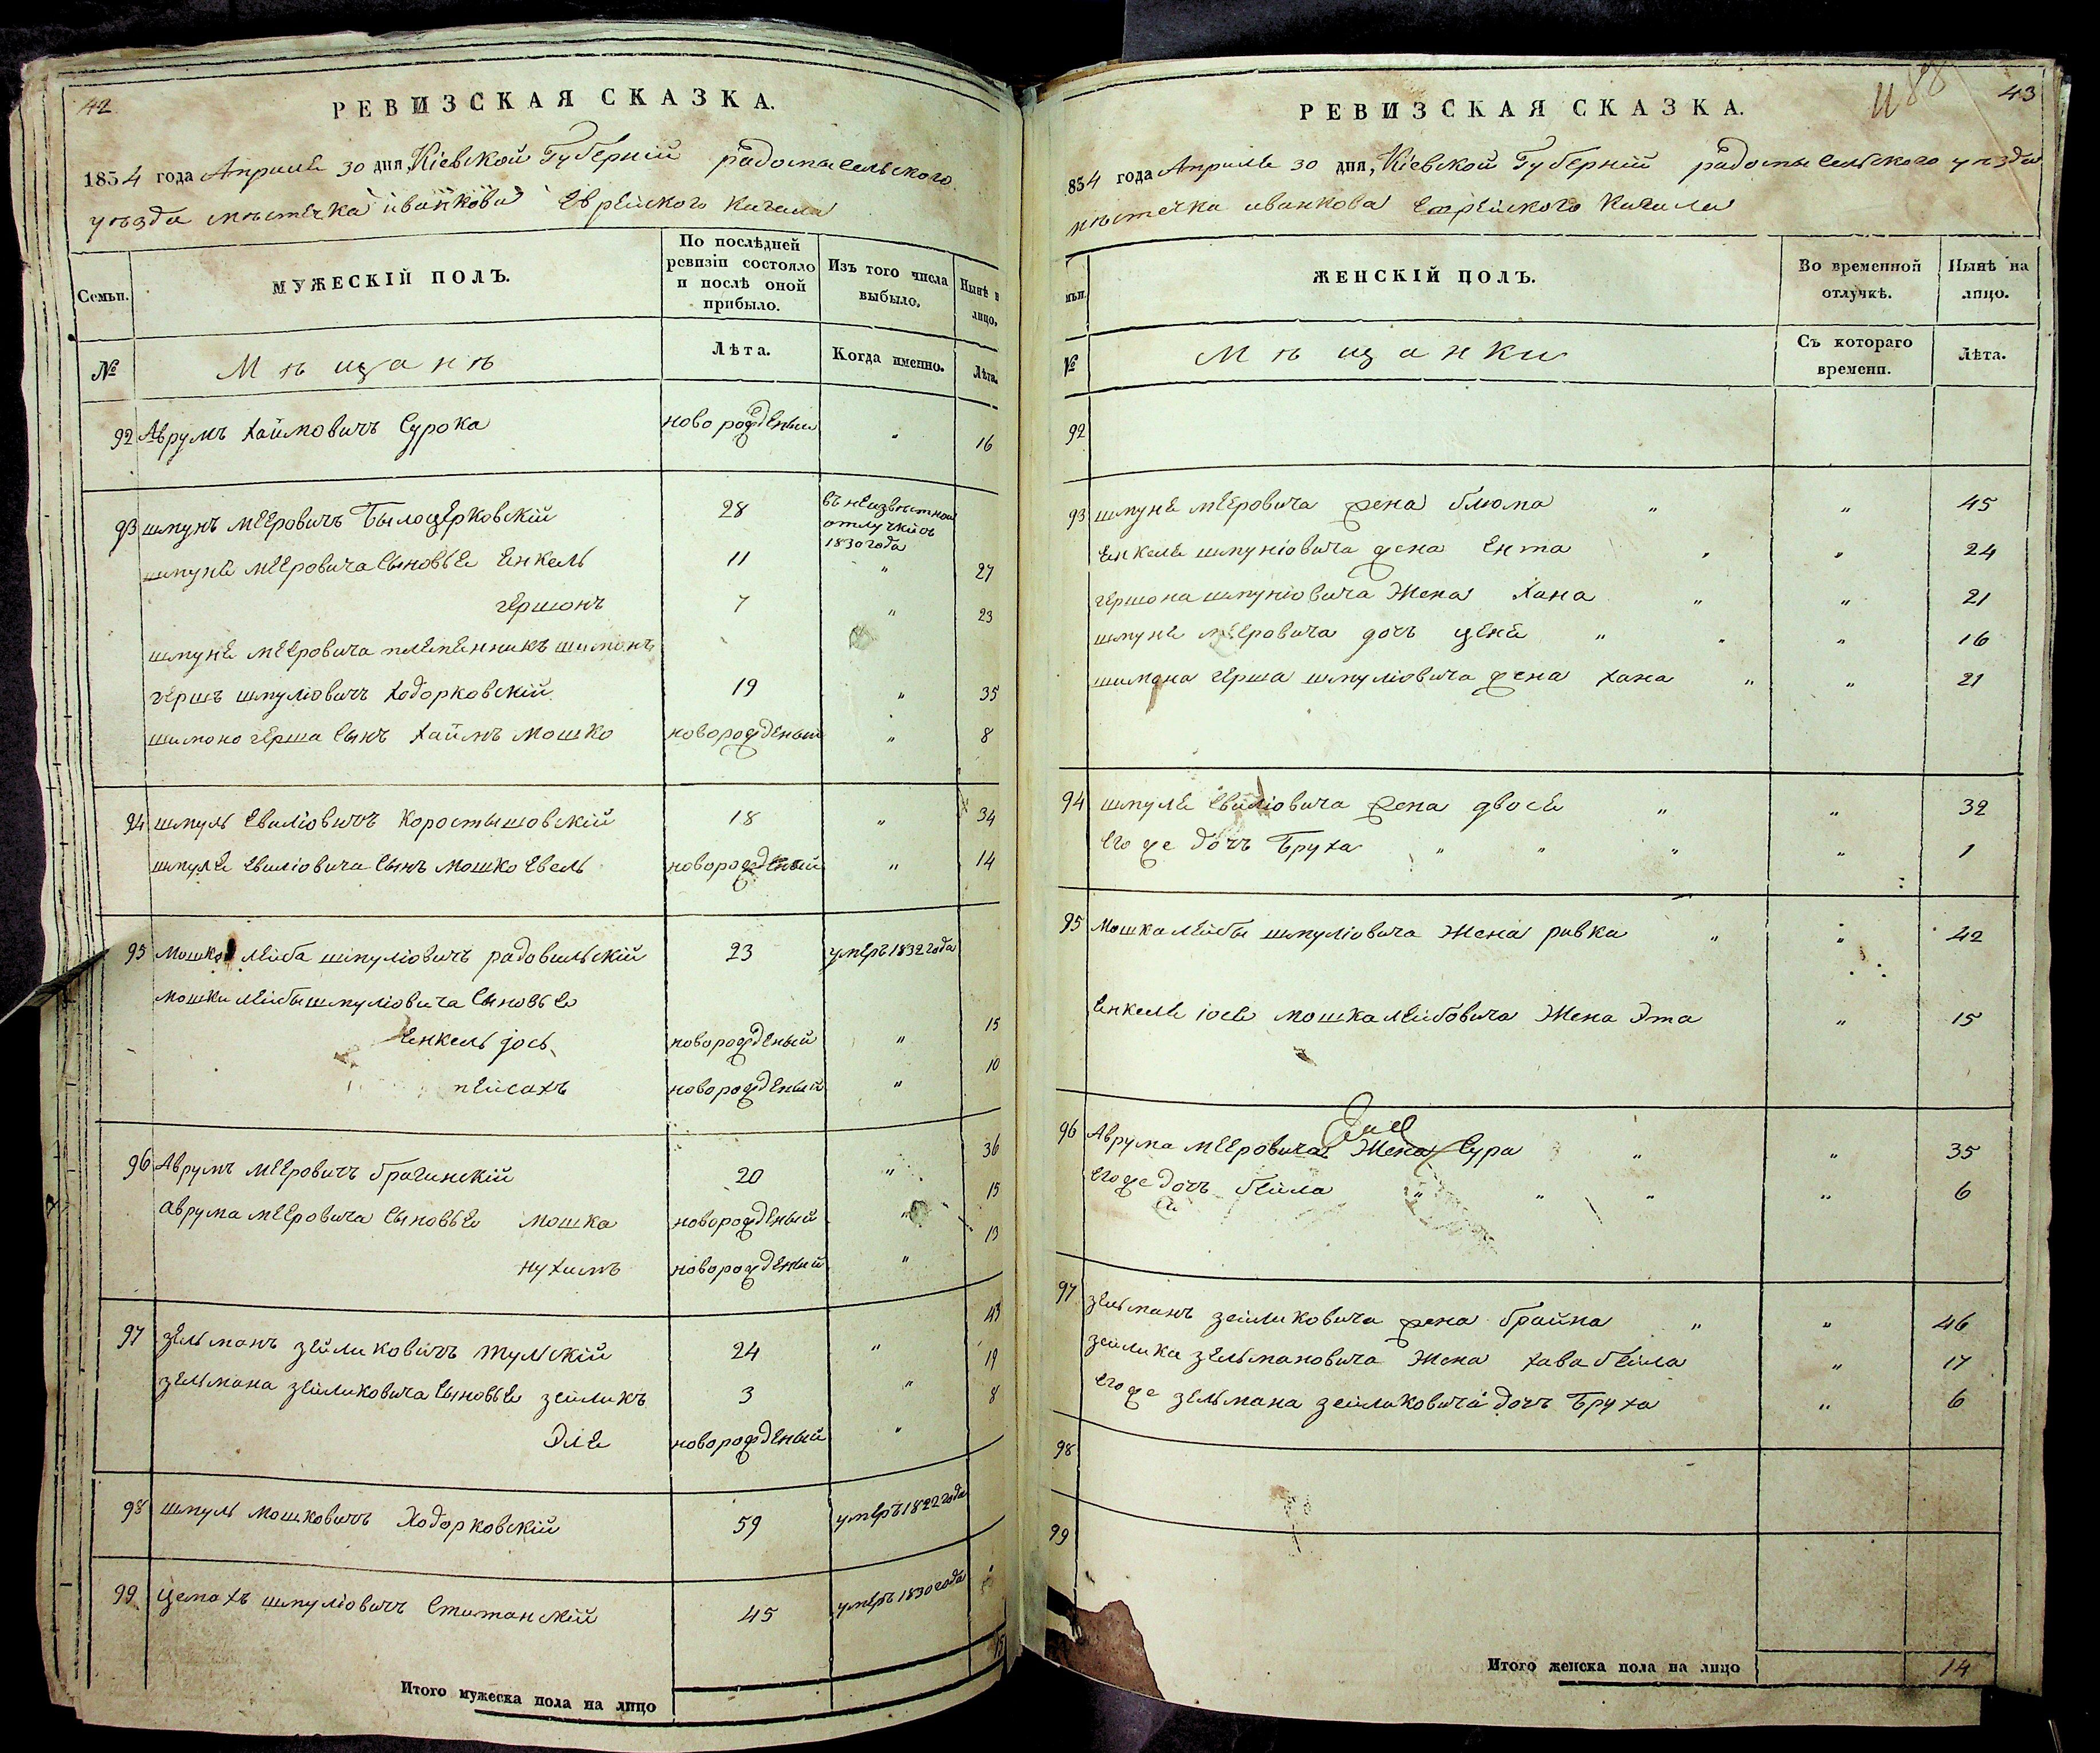 42
РЕВИЗСКАЯ СКАЗКА.
1854 года Апреля 30 дня, Кіевской Губерніи радомысльского
уѣзда мѣстечка иванкова Еврейского Кагала
Семьи.
МУЖЕСКІЙ ПОЛЪ.
По послѣдней ревизіи состояло и послѣ оной прибыло.
Изъ того числа выбыло.
Нынѣ н лицо.
№
Мѣщанѣ
Лѣта.
Когда именно.
Лѣта.
92 Аврумъ Хаймовичъ Сурока новорожденый " 16
93 шмунь мееровичъ Бѣлоцерковскій 28 въ неизвѣстной отлучки съ 1830 года
шмуня мееровича сыновье Енкель 11 " 27
гершонъ 7 " 23
шмуня мееровича племенникъ шимонъ
гершъ шмуліовичъ ходорковскій 19 " 35
шимоно герша сынъ Хаймъ мошко новорожденый " 8
94 шмуль Евиліовичъ коростышовскій 18 " 34
шмуля Евиліовича сынъ мошко Евель новорожденый " 14
95 мошко лейба шмуліовичъ радовильскій 23 умеръ 1832 года
мошки лейбы шмуліовича сыновье
Енкель іось новорожденый " 15
пейсахъ новорожденый " 10
96 Аврумъ мееровичъ брагинскій 20 " 36
аврума мееровича сыновье мошка новорожденый " 15
нухимъ новорожденый " 13
97 зельманъ зейликовичъ тульскій 24 " 43
зельмана зейликовича сыновье зейликъ 3 " 19
Эля новорожденый " 8
98 шмуль мошковичъ Ходорковскій 59 умеръ 1822 года
99 цемахъ шмуліовичъ 45 умеръ 1830 года
Итого мужеска пола на лицо 15
43
РЕВИЗСКАЯ СКАЗКА.
854 года Апреля 30 дня, Кіевской Губерніи радомысльского уѣзда
мѣстечка иванкова Еврейского Кагала
мьи.
ЖЕНСКІЙ ПОЛЪ.
Во временной отлучкѣ.
Нынѣ на лицо.
№
Мѣщанки
Съ котораго времени.
Лѣта.
92
93 шмуня мееровича жена блюма " " 45
Енкеля шмуніовича жена Ента " " 24
гершона шмуніовича Жена Хана " " 21
шмуня мееровича дочъ ценя " " " 16
шимона герша шмуліовича жена хана " " 21
94 шмуля Евиліовича жена двося " " 32
его же дочъ Бруха " " " " 1
95 Мошка лейбы шмуліовича Жена ривка " " 42
Енкеля іося мошка лейбовича Жена Эта " 15
96 Аврума мееровича Жена Сура " " 35
его же дочъ бейла " " " " 6
97 зельманъ зейликовича жена брайна " " 46
зейлика зельмановича Жена хава бейла " 17
его же зельмана зейликовича дочъ Бруха " 6
98
99
Итого женска пола на лицо 14